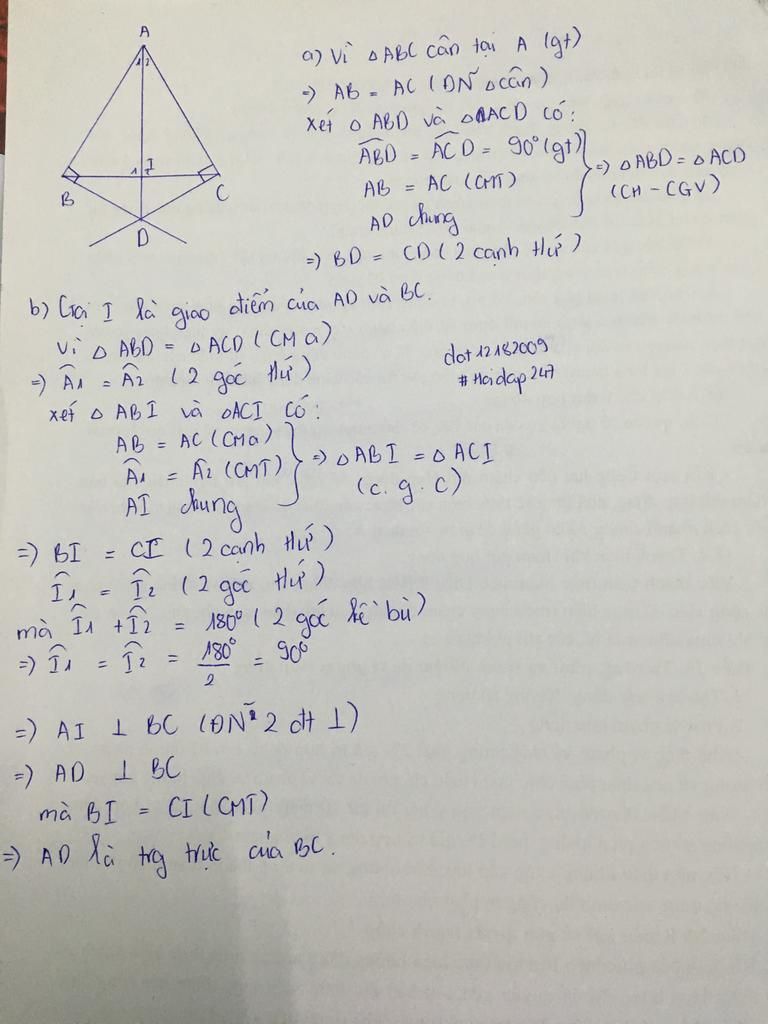 A
1 2
I
1 2
B
C
D
a) Vì △ABC cân tại A (gt)
=> AB = AC (ĐN △cân)
xét △ ABD và △ACD có:
ABD = ACD = 90° (gt)
AB = AC (CMT)
AD chung
=> △ABD = △ACD
(CH – CGV)
=> BD = CD (2 cạnh tứ)
b) Gọi I là giao điểm của AD và BC.
Vì △ ABD = △ACD (CM a)
=> Â1 = Â2 (2 góc tứ)
dat12182009
#Hoidap247
xét △ ABI và △ACI có:
AB = AC (CMa)
Â1 = Â2 (CMT)
AI chung
=> △ABI = △ACI
(c.g.c)
=> BI = CI (2 cạnh tứ)
Î1 = Î2 (2 góc tứ)
mà Î1 + Î2 = 180° (2 góc kề bù)
=> Î1 = Î2 = 180°/2 = 90°
=> AI ⊥ BC (ĐN 2 đt ⊥)
=> AD ⊥ BC
mà BI = CI (CMT)
=> AD là trg trực của BC.